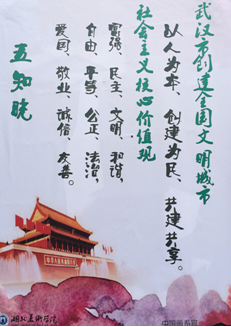 武汉市创建全国文明城市
以人为本、创建为民、共建共享。
社会主义核心价值观
富强、民主、文明、和谐、
自由、平等、公正、法治、
爱国、敬业、诚信、友善。
五知晓
湖北美术学院